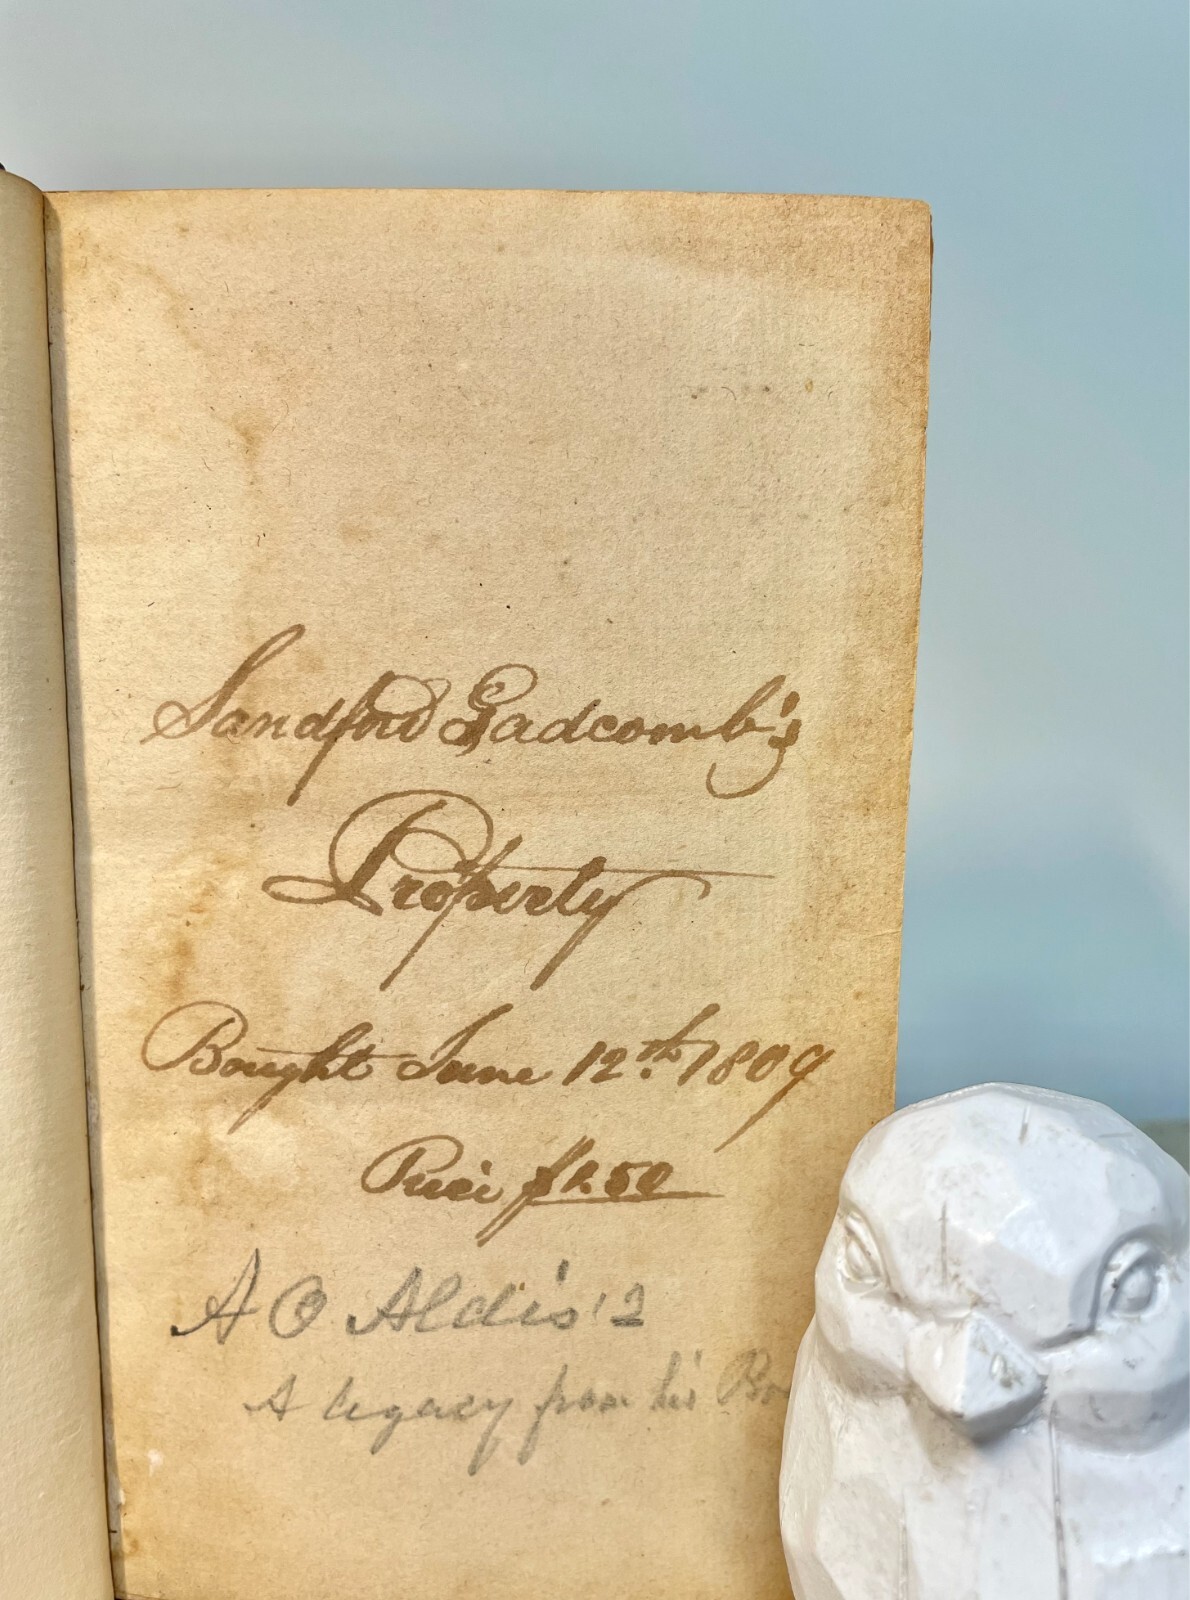 Sandford Gadcomb's
Property
Bought June 12th. 1809
Price $1.50
A O Aldis'2
A legacy from his